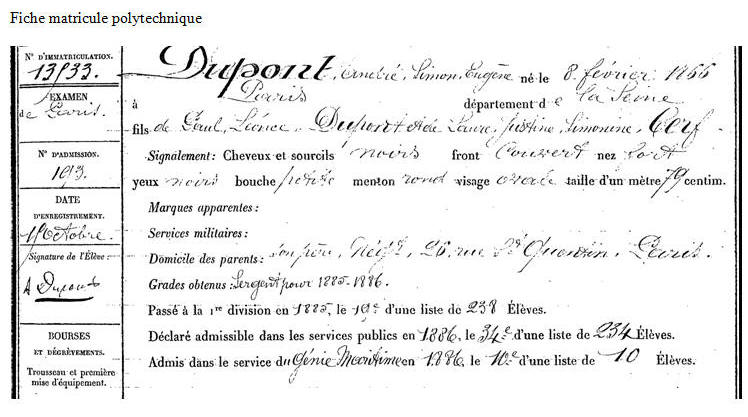 Fiche matricule polytechnique
N° D'IMMATRICULATION.
13933.
EXAMEN
de Paris.
N° D'ADMISSION.
193.
DATE
D'ENREGISTREMENT.
1 Octobre.
Signature de l'Élève :
A Dupont
BOURSES
ET DÉGRÈVEMENTS.
Trousseau et première
mise d'équipement.
Dupont, André, Simon, Eugène né le 8 février 1866
à Paris département de la Seine
fils de Paul, Léonce, Dupont et de Laure, Justine, Simonine, Cerf
Signalement : Cheveux et sourcils noirs front couvert nez fort
yeux noirs bouche petite menton rond visage ovale taille d'un mètre 79 centim.
Marques apparentes :
Services militaires :
Domicile des parents : son père, Nég.t, 26, rue St Quentin, Paris.
Grades obtenus : Sergent pour 1885-1886.
Passé à la 1re division en 1885, le 19e d'une liste de 238 Élèves.
Déclaré admissible dans les services publics en 1886, le 34e d'une liste de 234 Élèves.
Admis dans le service du Génie Maritime en 1886, le 10e d'une liste de 10 Élèves.